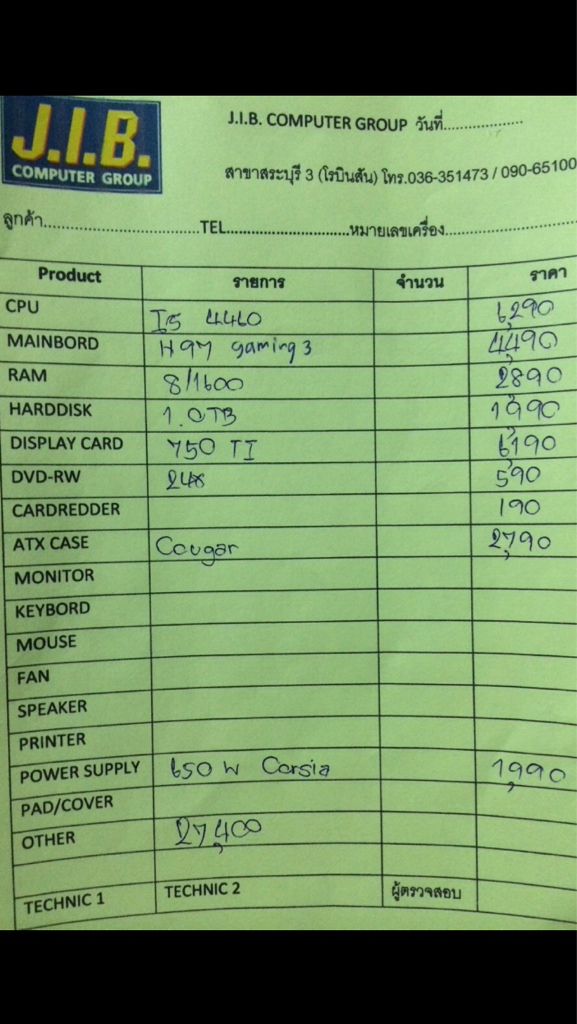 J.I.B.
COMPUTER GROUP
J.I.B. COMPUTER GROUP วันที่....................
สาขาสระบุรี 3 (โรบินสัน) โทร.036-351473 / 090-65100
ลูกค้า....................................TEL............................หมายเลขเครื่อง..............................
Product รายการ จำนวน ราคา
CPU I5 4460 6,290
MAINBORD H97 gaming 3 4,490
RAM 8/1600 2,890
HARDDISK 1.0TB 1,990
DISPLAY CARD 750 TI 6,190
DVD-RW 24x 590
CARDREDDER 190
ATX CASE Cougar 2,790
MONITOR
KEYBORD
MOUSE
FAN
SPEAKER
PRINTER
POWER SUPPLY 650 W Corsia 1,990
PAD/COVER
OTHER 27,400
TECHNIC 1 TECHNIC 2 ผู้ตรวจสอบ